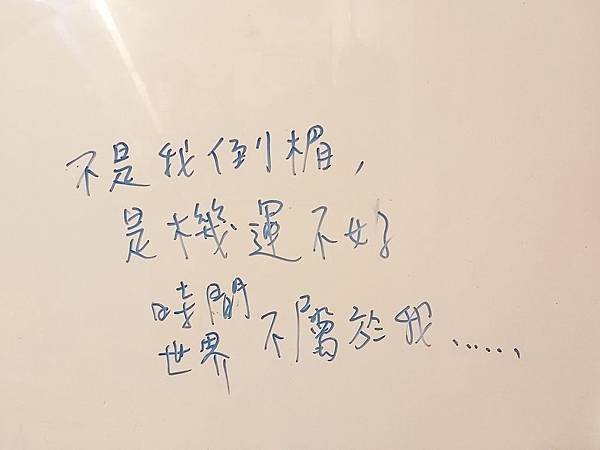 不是我倒楣，
是機運不好
時間
世界不屬於我……